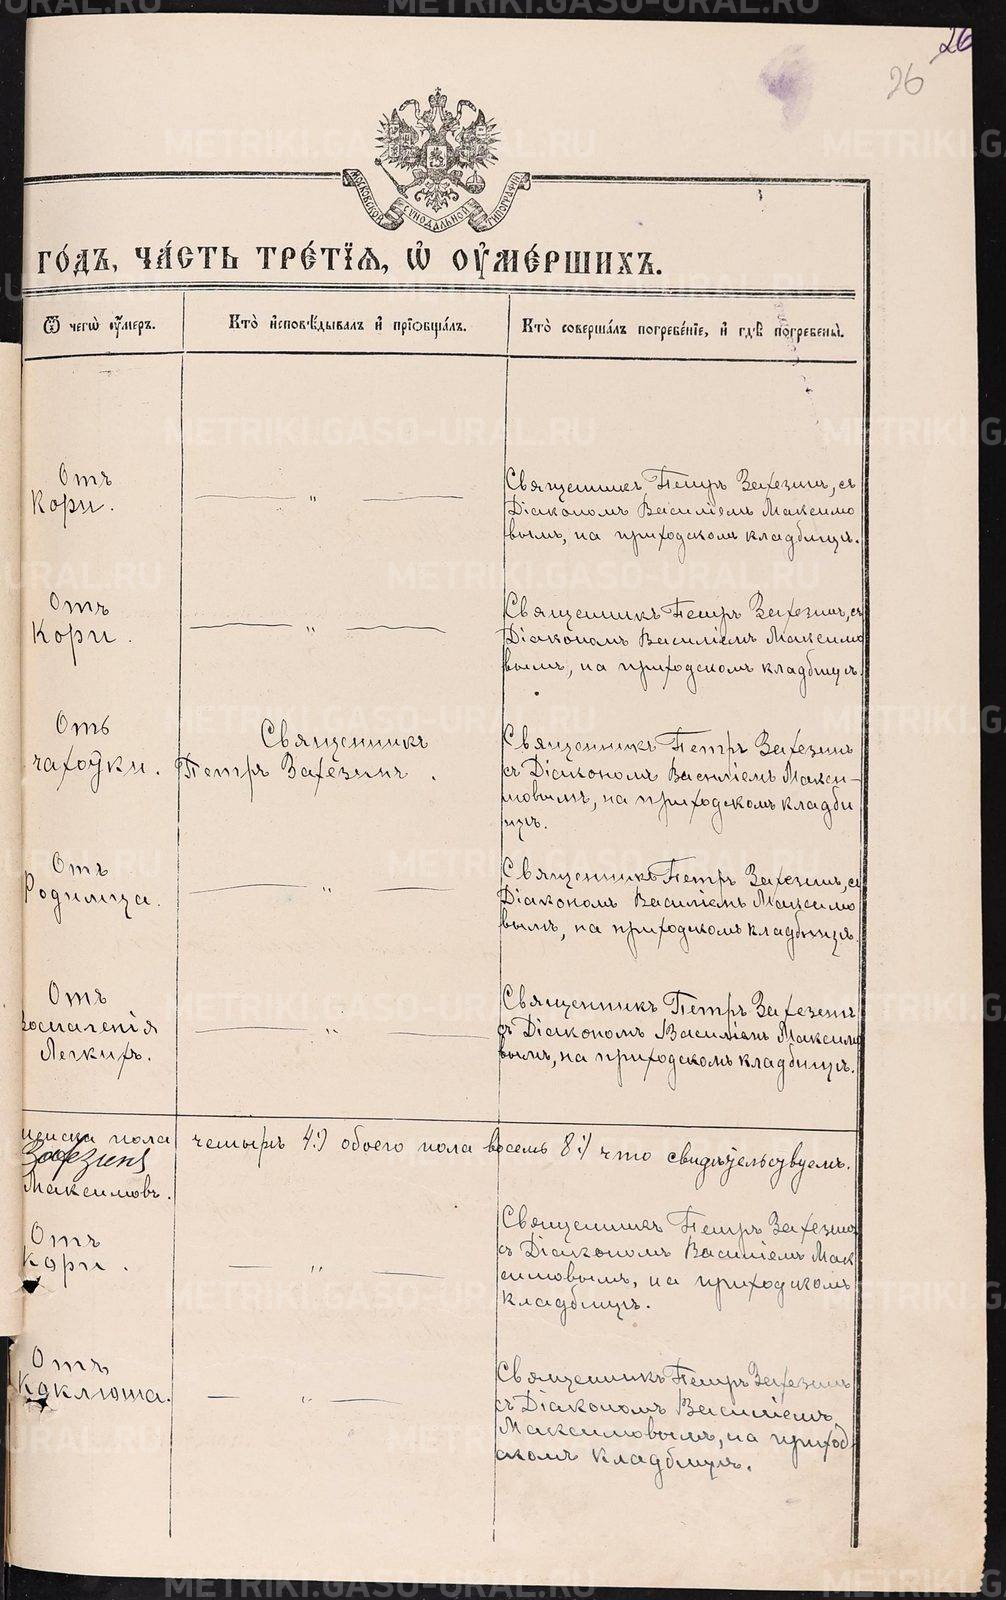 26
26
МОСКОВСКОЙ СѴНОДАЛЬНОЙ ТИПОГРАФІИ
го́дъ, ча́сть тре́тїѧ, ѡ҆ ᲂу҆ме́ршихъ.
Ѿ чегѡ̀ ᲂу҆́меръ.
Кто̀ и҆сповѣ́дывалъ и҆ прїѡбща́лъ.
Кто̀ соверша́лъ погребе́нїе, и҆ гдѣ̀ погребены̀.
Отъ
Кори.
— " —
Священникъ Петръ Заѳезинъ, съ
Діакономъ Василіемъ Максимо
вымъ, на приходскомъ кладбищѣ.
Отъ
Кори.
— " —
Священникъ Петръ Заѳезинъ, съ
Діакономъ Василіемъ Максимо
вымъ, на приходскомъ кладбищѣ.
Отъ
чахоѹки.
Священникъ
Петръ Заѳезинъ.
Священникъ Петръ Заѳезинъ
съ Діакономъ Василіемъ Макси-
мовымъ, на приходскомъ кладби
щѣ.
Отъ
Родимца.
— " —
Священникъ Петръ Заѳезинъ, съ
Діакономъ Василіемъ Максимо
вымъ, на приходскомъ кладбищѣ.
Отъ
воспаленія
Легкихъ.
— " —
Священникъ Петръ Заѳезинъ
съ Діакономъ Василіемъ Максимо
вымъ, на приходскомъ кладбищѣ.
женска пола четыре 4:) обоего пола восемь 8:) что свидѣтельствуемъ.
Заѳезинъ
Максимовъ.
Отъ
Кори.
— " —
Священникъ Петръ Заѳезинъ
съ Діакономъ Василіемъ Мак
симовымъ, на приходскомъ
кладбищѣ.
Отъ
Коклюша.
— " —
Священникъ Петръ Заѳезинъ
съ Діакономъ Василіемъ
Максимовымъ, на приход
скомъ кладбищѣ.
METRIKI.GASO-URAL.RU